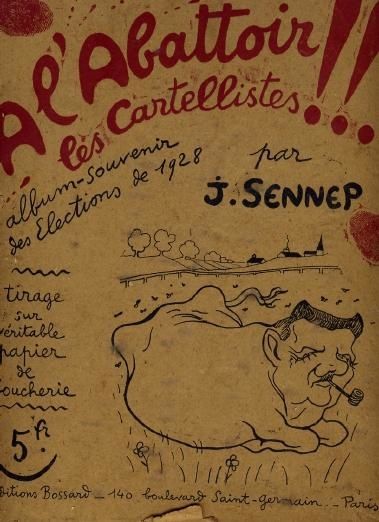 A l'Abattoir!!
les Cartellistes...
album-souvenir
des Elections de 1928
par
J. SENNEP
tirage
sur
véritable
papier
de
boucherie
5 Fr
Editions Bossard _ 140 boulevard Saint-Germain _ Paris